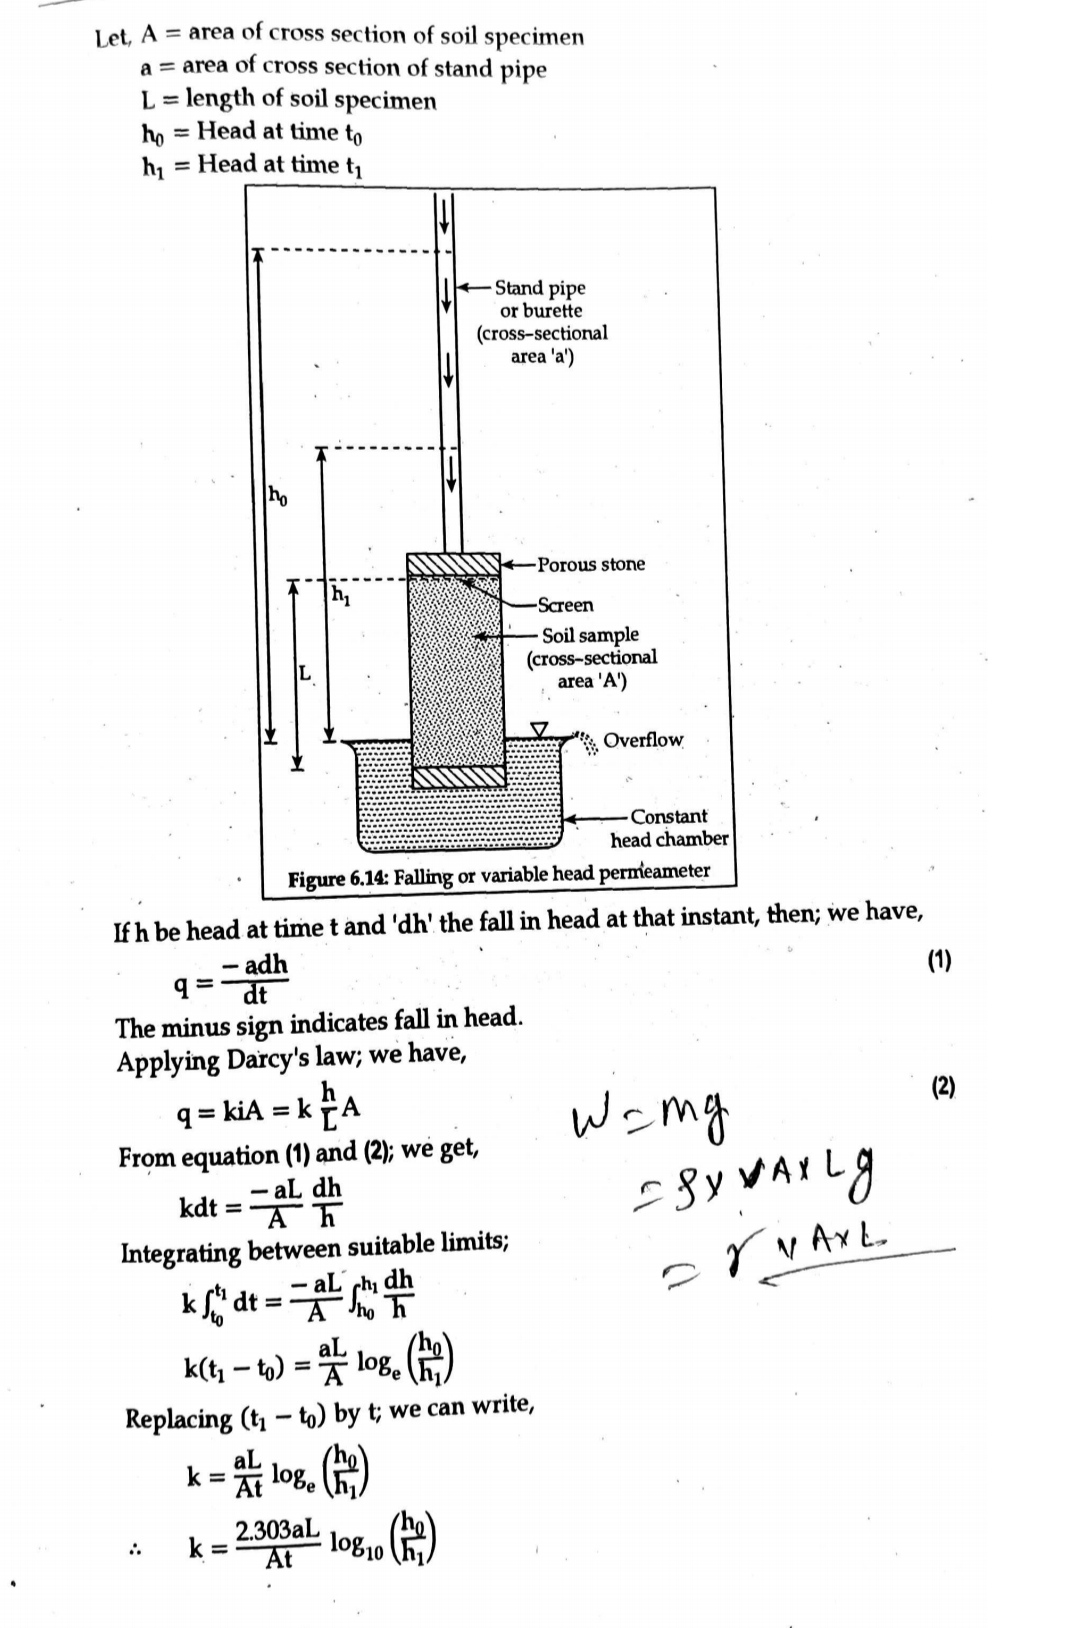 Let, A = area of cross section of soil specimen
a = area of cross section of stand pipe
L = length of soil specimen
h₀ = Head at time t₀
h₁ = Head at time t₁
Stand pipe
or burette
(cross-sectional
area 'a')
h₀
Porous stone
h₁
Screen
Soil sample
(cross-sectional
area 'A')
L
Overflow
Constant
head chamber
Figure 6.14: Falling or variable head permeameter
If h be head at time t and 'dh' the fall in head at that instant, then; we have,
q = −adh/dt (1)
The minus sign indicates fall in head.
Applying Darcy's law; we have,
q = kiA = k h/L A (2)
From equation (1) and (2); we get,
kdt = −aL/A dh/h
Integrating between suitable limits;
k ∫t₀^t₁ dt = −aL/A ∫h₀^h₁ dh/h
k(t₁ − t₀) = aL/A logₑ (h₀/h₁)
Replacing (t₁ − t₀) by t; we can write,
k = aL/At logₑ (h₀/h₁)
∴ k = 2.303aL/At log₁₀ (h₀/h₁)
W = mg
= A×L g
= γ A×L